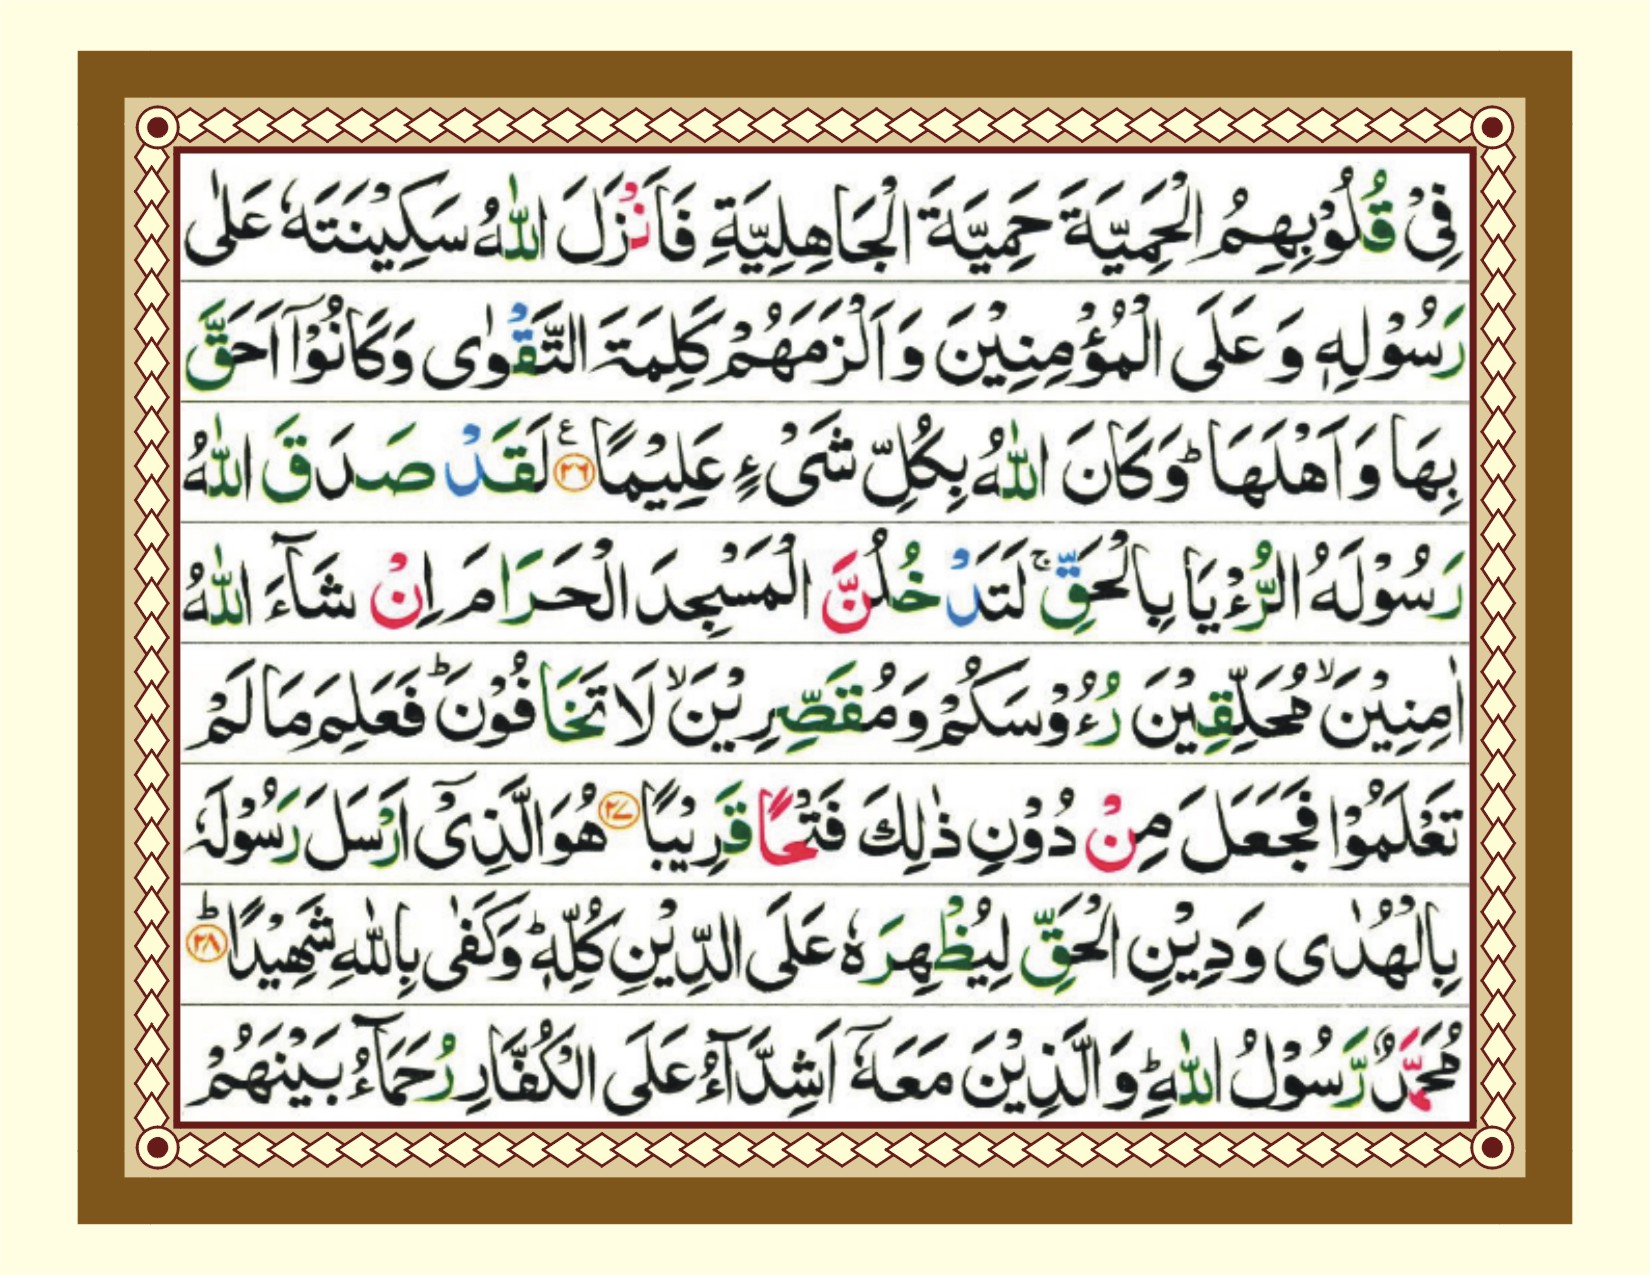 فِیْ قُلُوْبِهِمُ الْحَمِیَّةَ حَمِیَّةَ الْجَاهِلِیَّةِ فَاَنْزَلَ اللّٰهُ سَكِیْنَتَهٗ عَلٰی
رَسُوْلِهٖ وَ عَلَی الْمُؤْمِنِیْنَ وَ اَلْزَمَهُمْ كَلِمَةَ التَّقْوٰی وَ كَانُوْۤا اَحَقَّ
بِهَا وَ اَهْلَهَا ؕ وَ كَانَ اللّٰهُ بِكُلِّ شَیْءٍ عَلِیْمًا ۟۠ ﴿۲۶﴾ لَقَدْ صَدَقَ اللّٰهُ
رَسُوْلَهُ الرُّءْیَا بِالْحَقِّ ۚ لَتَدْخُلُنَّ الْمَسْجِدَ الْحَرَامَ اِنْ شَآءَ اللّٰهُ
اٰمِنِیْنَ ۙ مُحَلِّقِیْنَ رُءُوْسَكُمْ وَ مُقَصِّرِیْنَ ۙ لَا تَخَافُوْنَ ؕ فَعَلِمَ مَا لَمْ
تَعْلَمُوْا فَجَعَلَ مِنْ دُوْنِ ذٰلِكَ فَتْحًا قَرِیْبًا ﴿۲۷﴾ هُوَ الَّذِیْۤ اَرْسَلَ رَسُوْلَهٗ
بِالْهُدٰی وَ دِیْنِ الْحَقِّ لِیُظْهِرَهٗ عَلَی الدِّیْنِ كُلِّهٖ ؕ وَ كَفٰی بِاللّٰهِ شَهِیْدًا ﴿ؕ۲۸﴾
مُحَمَّدٌ رَّسُوْلُ اللّٰهِ ؕ وَ الَّذِیْنَ مَعَهٗۤ اَشِدَّآءُ عَلَی الْكُفَّارِ رُحَمَآءُ بَیْنَهُمْ